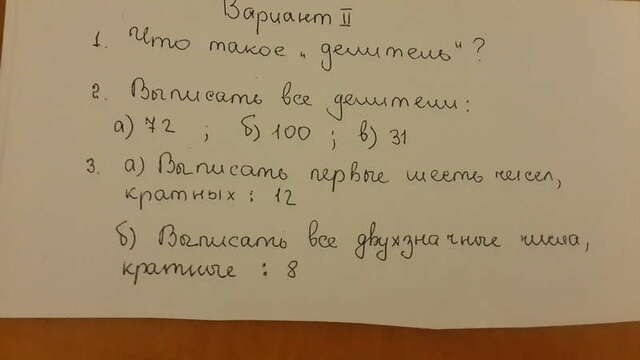 Вариант II
1. Что такое „делитель"?
2. Выписать все делители:
а) 72 ; б) 100 ; в) 31
3. а) Выписать первые шесть чисел,
кратных : 12
б) Выписать все двухзначные числа,
кратные : 8